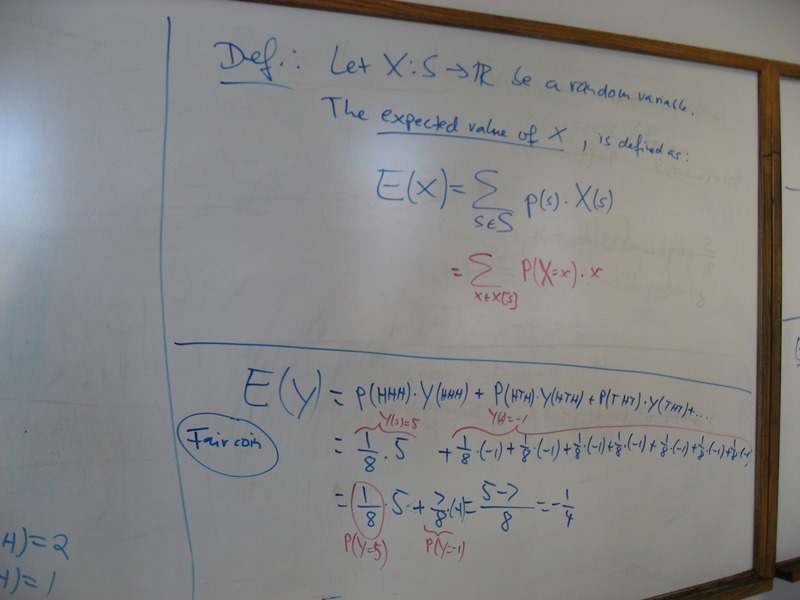 Def.: Let X: S → ℝ be a random variable.
The expected value of X, is defined as:
E(X) = ∑ p(s) · X(s)
s∈S
= ∑ P(X=x) · x
x∈X[S]
E(Y) = P(HHH) · Y(HHH) + P(HTH) · Y(HTH) + P(THT) · Y(THT) + ....
Y(s)=5 Y(s)=-1
Fair coin
= 1/8 · 5 + 1/8 · (-1) + 1/8 · (-1) + 1/8 · (-1) + 1/8 · (-1) + 1/8 · (-1) + 1/8 · (-1) + 1/8 · (-1)
= 1/8 · 5 + 7/8 · (-1) = 5-7/8 = -1/4
P(Y=5) P(Y=-1)
H) = 2
H) = 1